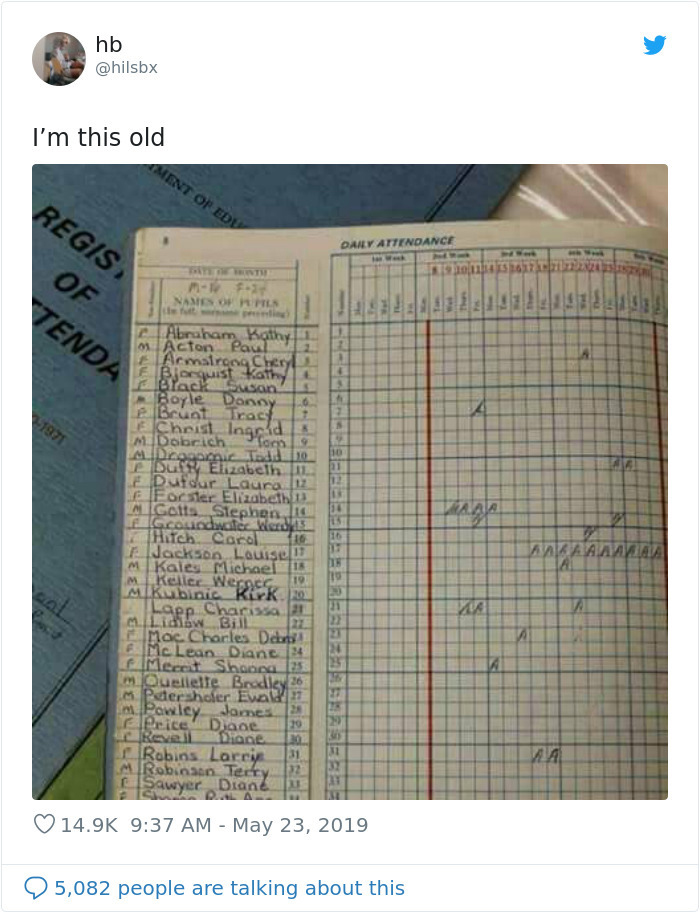 hb
@hilsbx
I’m this old
MENT OF EDU
REGIS
OF
TTENDA
-1971
8
DAILY ATTENDANCE
1st Week 2nd Week 3rd Week 4th Week 5th Week
DATE OF MONTH
8 9 10 11 14 15 16 17 18 21 22 23 24 25 28 29 30
NAMES OF PUPILS
(In full, surname preceding)
Number
F Abraham Kathy 1
M Acton Paul 2
F Armstrong Cheryl 3
F Bjorquist Kathy 4
F Black Susan 5
M Boyle Donny 6
F Brunt Tracy 7
F Christ Ingrid 8
M Dobrich Tom 9
M Dragomir Todd 10
F Duffy Elizabeth 11
F Dufour Laura 12
F Forster Elizabeth 13
M Gotts Stephen 14
F Groundwater Wendy 15
Hitch Carol 16
F Jackson Louise 17
M Kales Michael 18
M Keller Werner 19
M Kubinic Kirk 20
Lapp Charissa 21
M Lidlow Bill 22
F Mac Charles Debra 23
F McLean Diane 24
F Merrit Shonna 25
M Ouellette Bradley 26
M Petershofer Ewald 27
M Powley James 28
F Price Diane 29
F Revell Diane 30
F Robins Lorrie 31
M Robinson Terry 32
F Sawyer Diane 33
14.9K 9:37 AM - May 23, 2019
5,082 people are talking about this